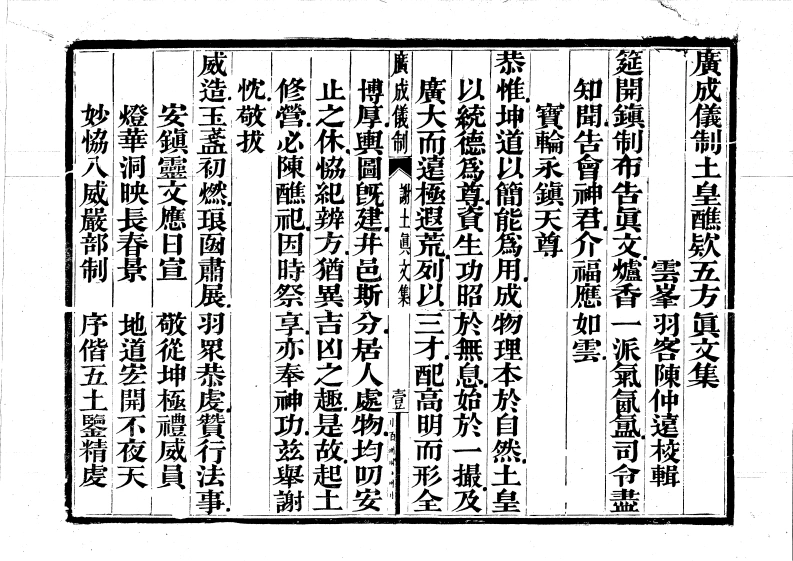 廣成儀制土皇醮欵五方眞文集
雲峯羽客陳仲遠校輯
筵開鎮制布告眞文爐香一派氣氤氳司令盡
知聞告會神君介福應如雲
寶輪永鎮天尊
恭惟坤道以簡能爲用成物理本於自然土皇
以統德爲尊資生功昭於無息始於一撮及
廣大而遠極遐荒列以三才配高明而形全
廣成儀制 謝土眞文集 壹
博厚輿圖旣建井邑斯分居人處物均叨安
止之休恊紀辨方猶異吉凶之趣是故起土
修營必陳醮祀因時祭享亦奉神功玆舉謝
忱敬拔
威造玉盞初燃琅函肅展羽眾恭虔贊行法事
安鎮靈文應日宣 敬從坤極禮威員
燈華洞映長春景 地道宏開不夜天
妙恊八威嚴部制 序偕五土鑒精虔